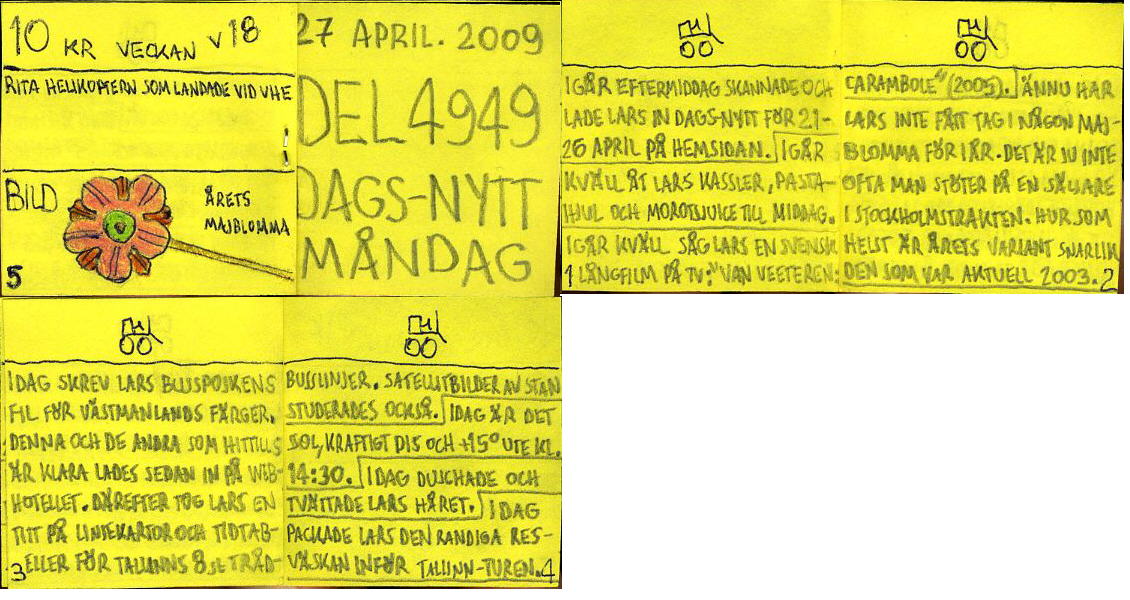 10 KR VECKAN V18
RITA HELIKOPTERN SOM LANDADE VID VHE
BILD
ÅRETS
MAJBLOMMA
5
27 APRIL. 2009
DEL 4949
DAGS-NYTT
MÅNDAG
IGÅR EFTERMIDDAG SKANNADE OCH
LADE LARS IN DAGS-NYTT FÖR 21-
26 APRIL PÅ HEMSIDAN. IGÅR
KVÄLL ÅT LARS KASSLER, PASTA-
HJUL OCH MOROTSJUICE TILL MIDDAG.
IGÅR KVÄLL SÅG LARS EN SVENSK
1 LÅNGFILM PÅ TV: "VAN VEETEREN:
CARAMBOLE" (2005). ÄNNU HAR
LARS INTE FÅTT TAG I NÅGON MAJ-
BLOMMA FÖR I ÅR. DET ÄR JU INTE
OFTA MAN STÖTER PÅ EN SÄLJARE
I STOCKHOLMSTRAKTEN. HUR SOM
HELST ÄR ÅRETS VARIANT SNARLIK
DEN SOM VAR AKTUELL 2003. 2
IDAG SKREV LARS BUSSPOJKENS
FIL FÖR VÄSTMANLANDS FÄRGER.
DENNA OCH DE ANDRA SOM HITTILLS
ÄR KLARA LADES SEDAN IN PÅ WEB-
HOTELLET. DÄREFTER TOG LARS EN
TITT PÅ LINJEKARTOR OCH TIDTAB-
3 ELLER FÖR TALLINNS 8 ST TRÅD-
BUSSLINJER. SATELLITBILDER AV STAN
STUDERADES OCKSÅ. IDAG ÄR DET
SOL, KRAFTIGT DIS OCH +15° UTE KL.
14:30. IDAG DUSCHADE OCH
TVÄTTADE LARS HÅRET. IDAG
PACKADE LARS DEN RANDIGA RES-
VÄSKAN INFÖR TALLINN-TUREN. 4